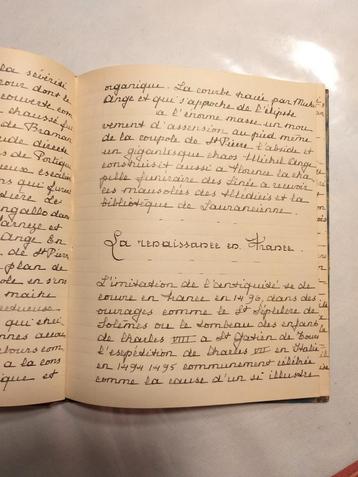 la sévérité
cour dont le
couverte com
chausse fu
de Braman
ude directe
de Portique
eux escalie
ns qui furent
tière Le
ngallo dans
arneze et
Ange En
de St Pierr
plan de
ole en s'ins
maitre
ectueuse
qui s'hei
nnes aux
tours com
a la cons
ique et
organique. La courbe tracée par Michel
Ange et qui s'approche de l'elipste
à l'énorme masse un mou
vement d'assension au pied même
de la coupole de St Pierre l'abside et
un gigantesque chaos Michel Ange
construisit aussi a Florence la cha
pelle funiraire des
les mausolées des Médicis et la
bibliotèque de Lauranéienne
La renaissance en France
L'imitation de l'antiquité se dé
couvre en France en 1496, dans des
ouvrages comme le St Sépulcre de
Solèmes ou le tombeau des enfants
de Charles VIII a St Gatien de Tours
l'esepédition de Charles VII en Italie
en 1494 1495 communement célébrée
comme la cause d'un si illustre